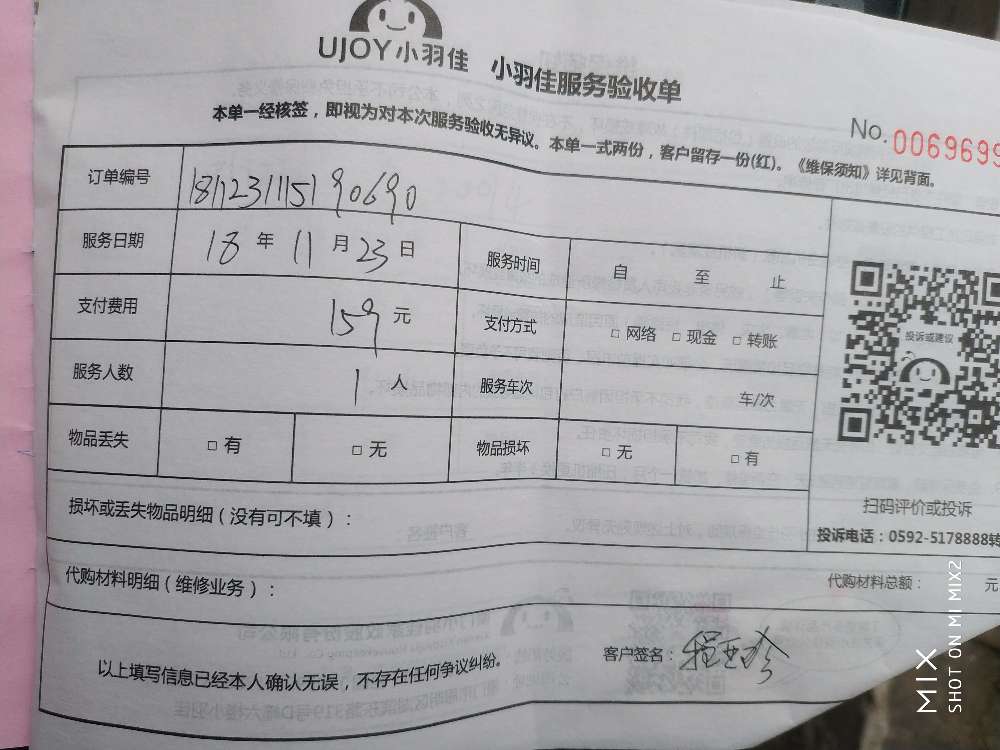 UJOY小羽佳 小羽佳服务验收单
本单一经核签，即视为对本次服务验收无异议。本单一式两份，客户留存一份(红)。《维保须知》详见背面。
No. 0069699
订单编号 1811231115190690
服务日期 18 年 11 月 23 日 服务时间 自 至 止
支付费用 159 元 支付方式 □ 网络 □ 现金 □ 转账
服务人数 1 人 服务车次 车/次
物品丢失 □ 有 □ 无 物品损坏 □ 无 □ 有
投诉或建议
扫码评价或投诉
投诉电话：0592-5178888转
损坏或丢失物品明细（没有可不填）：
代购材料明细（维修业务）： 代购材料总额： 元
以上填写信息已经本人确认无误，不存在任何争议纠纷。 客户签名：
MIX
SHOT ON MI MIX2